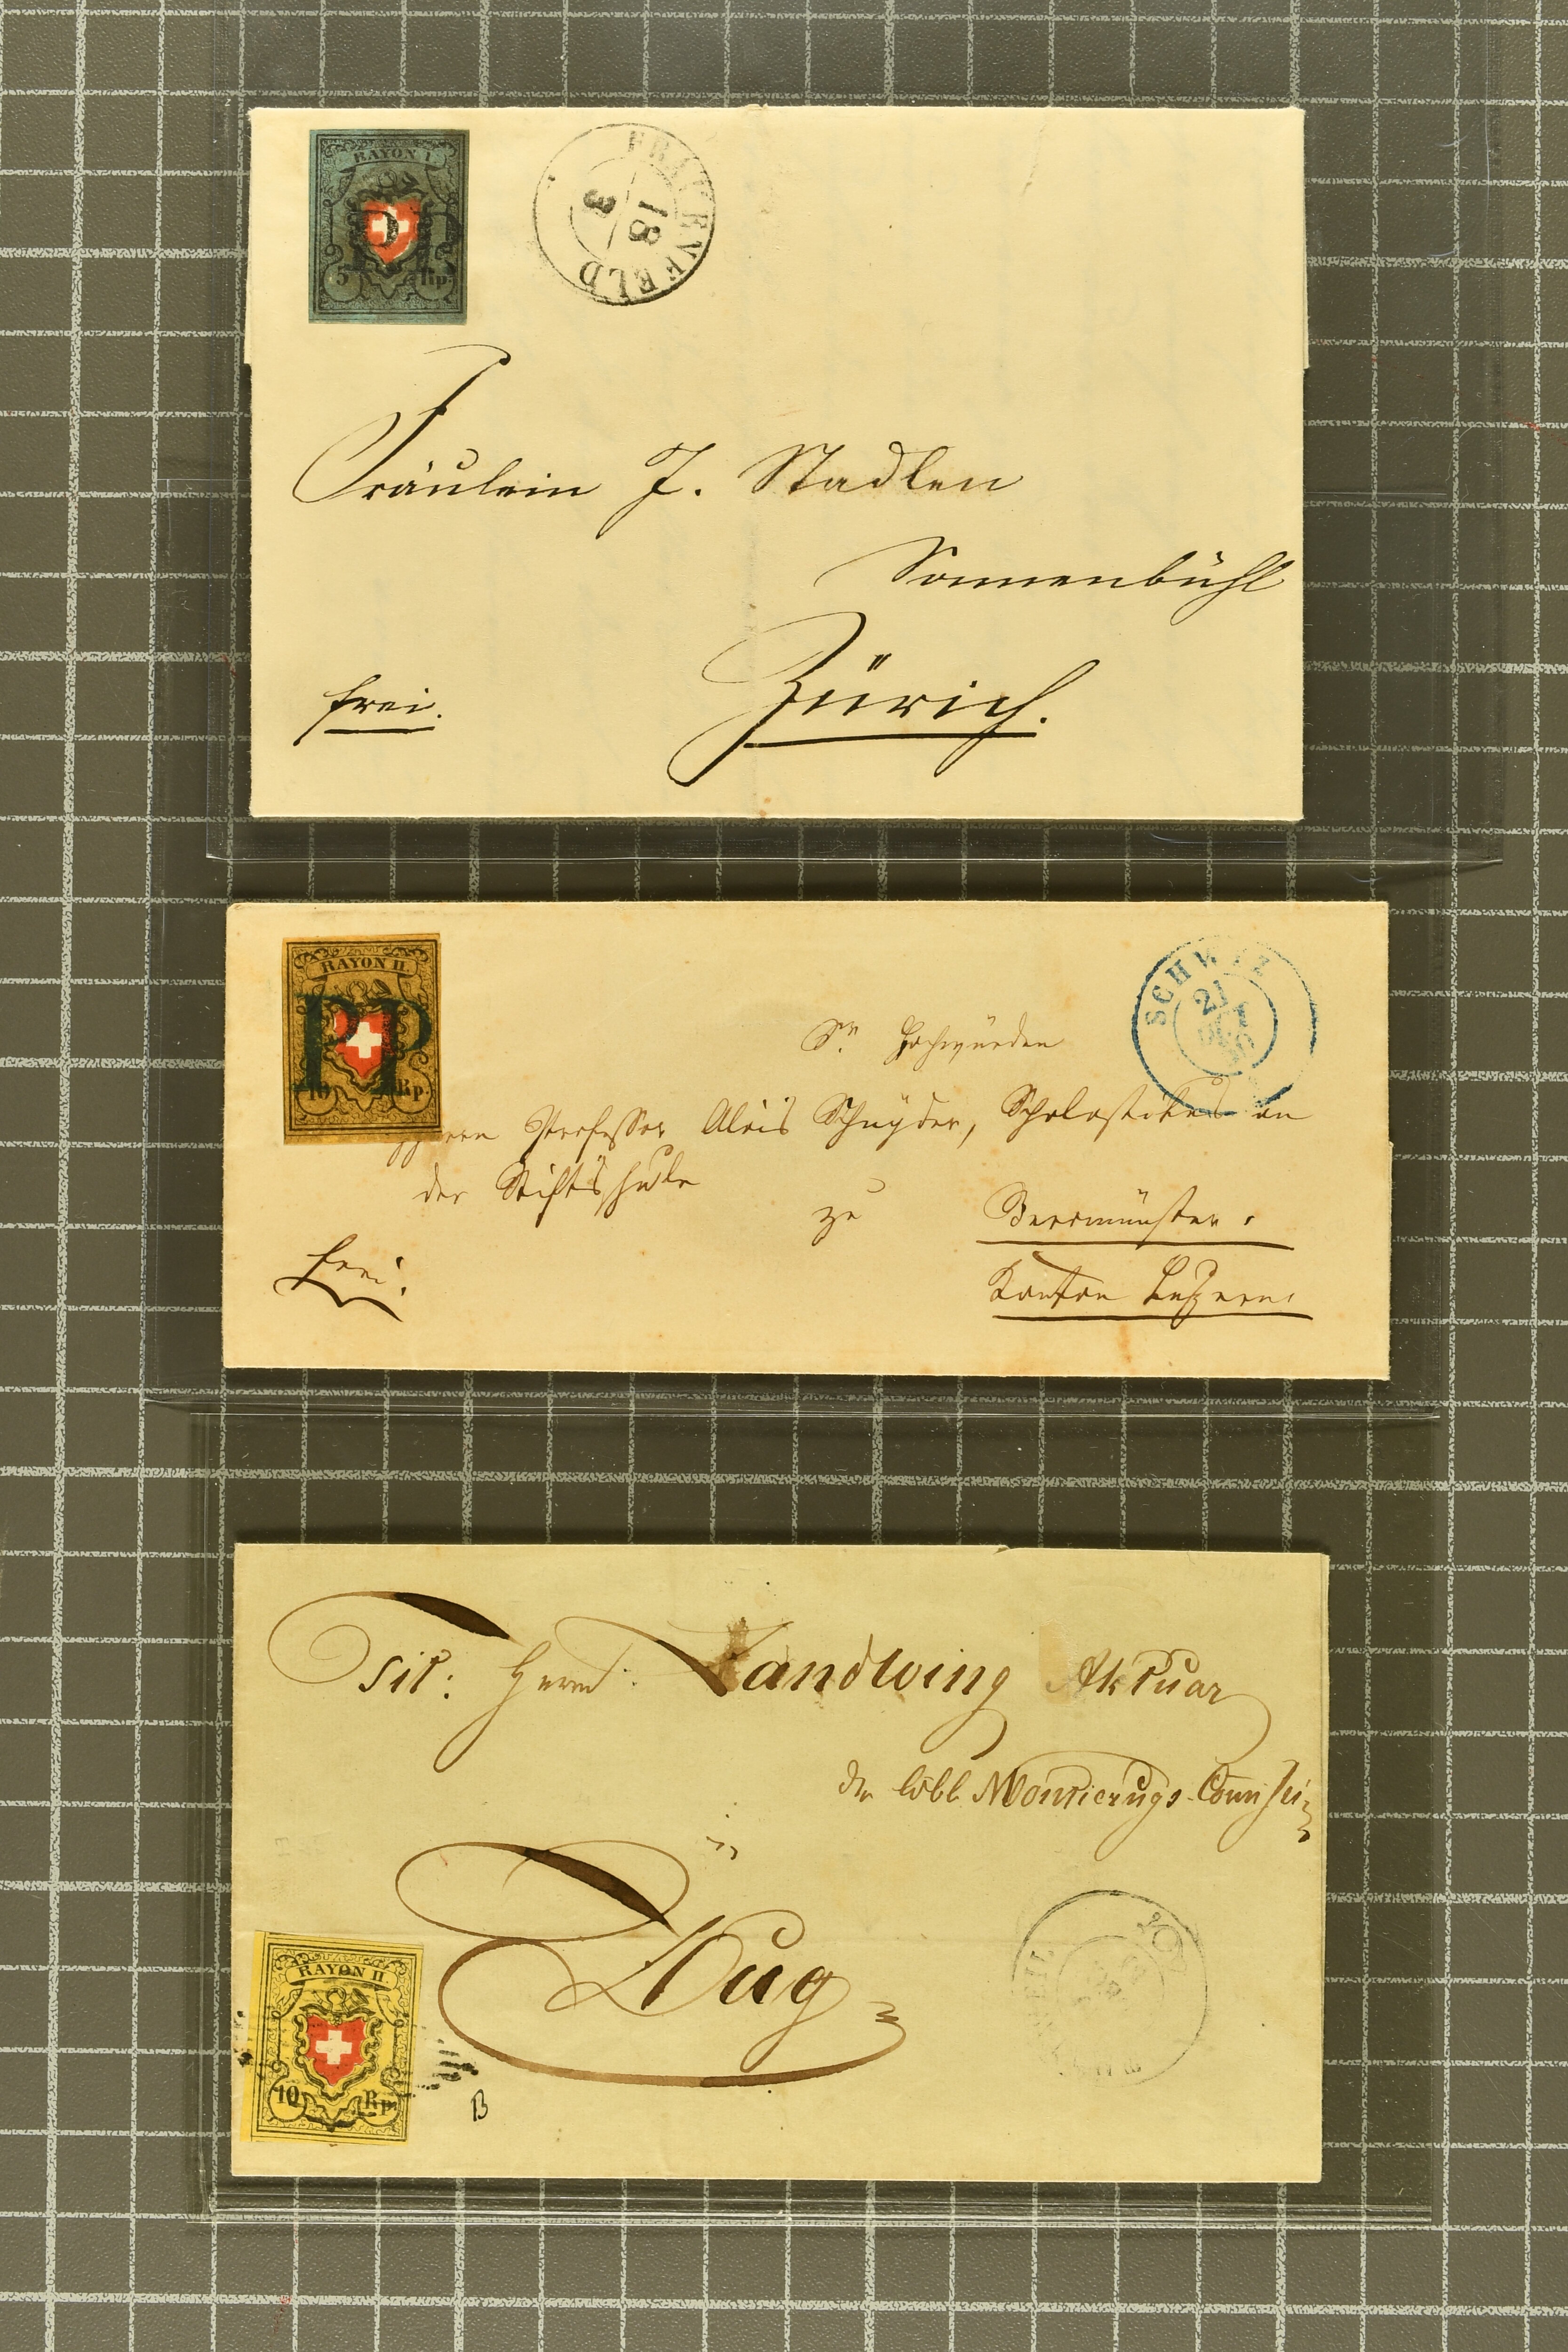 RAYON I
5 Rp.
FRAUENFELD
18
3
Fräulein J. Stadler
Sonnenbühl
Zürich.
frei.
RAYON II.
PP
10 Rp.
SCHWYZ
21
50
Sr. Hochwürden
Herrn Professor Alois Schnyder, Scholastikus an
der Stiftsschule
zu Beromünster.
Kanton Luzern.
frei.
Tit: Herrn: Landtwing Aktuar
der löbl Montierungs-Commission
in
Zug
RAYON II
10 Rp.
B